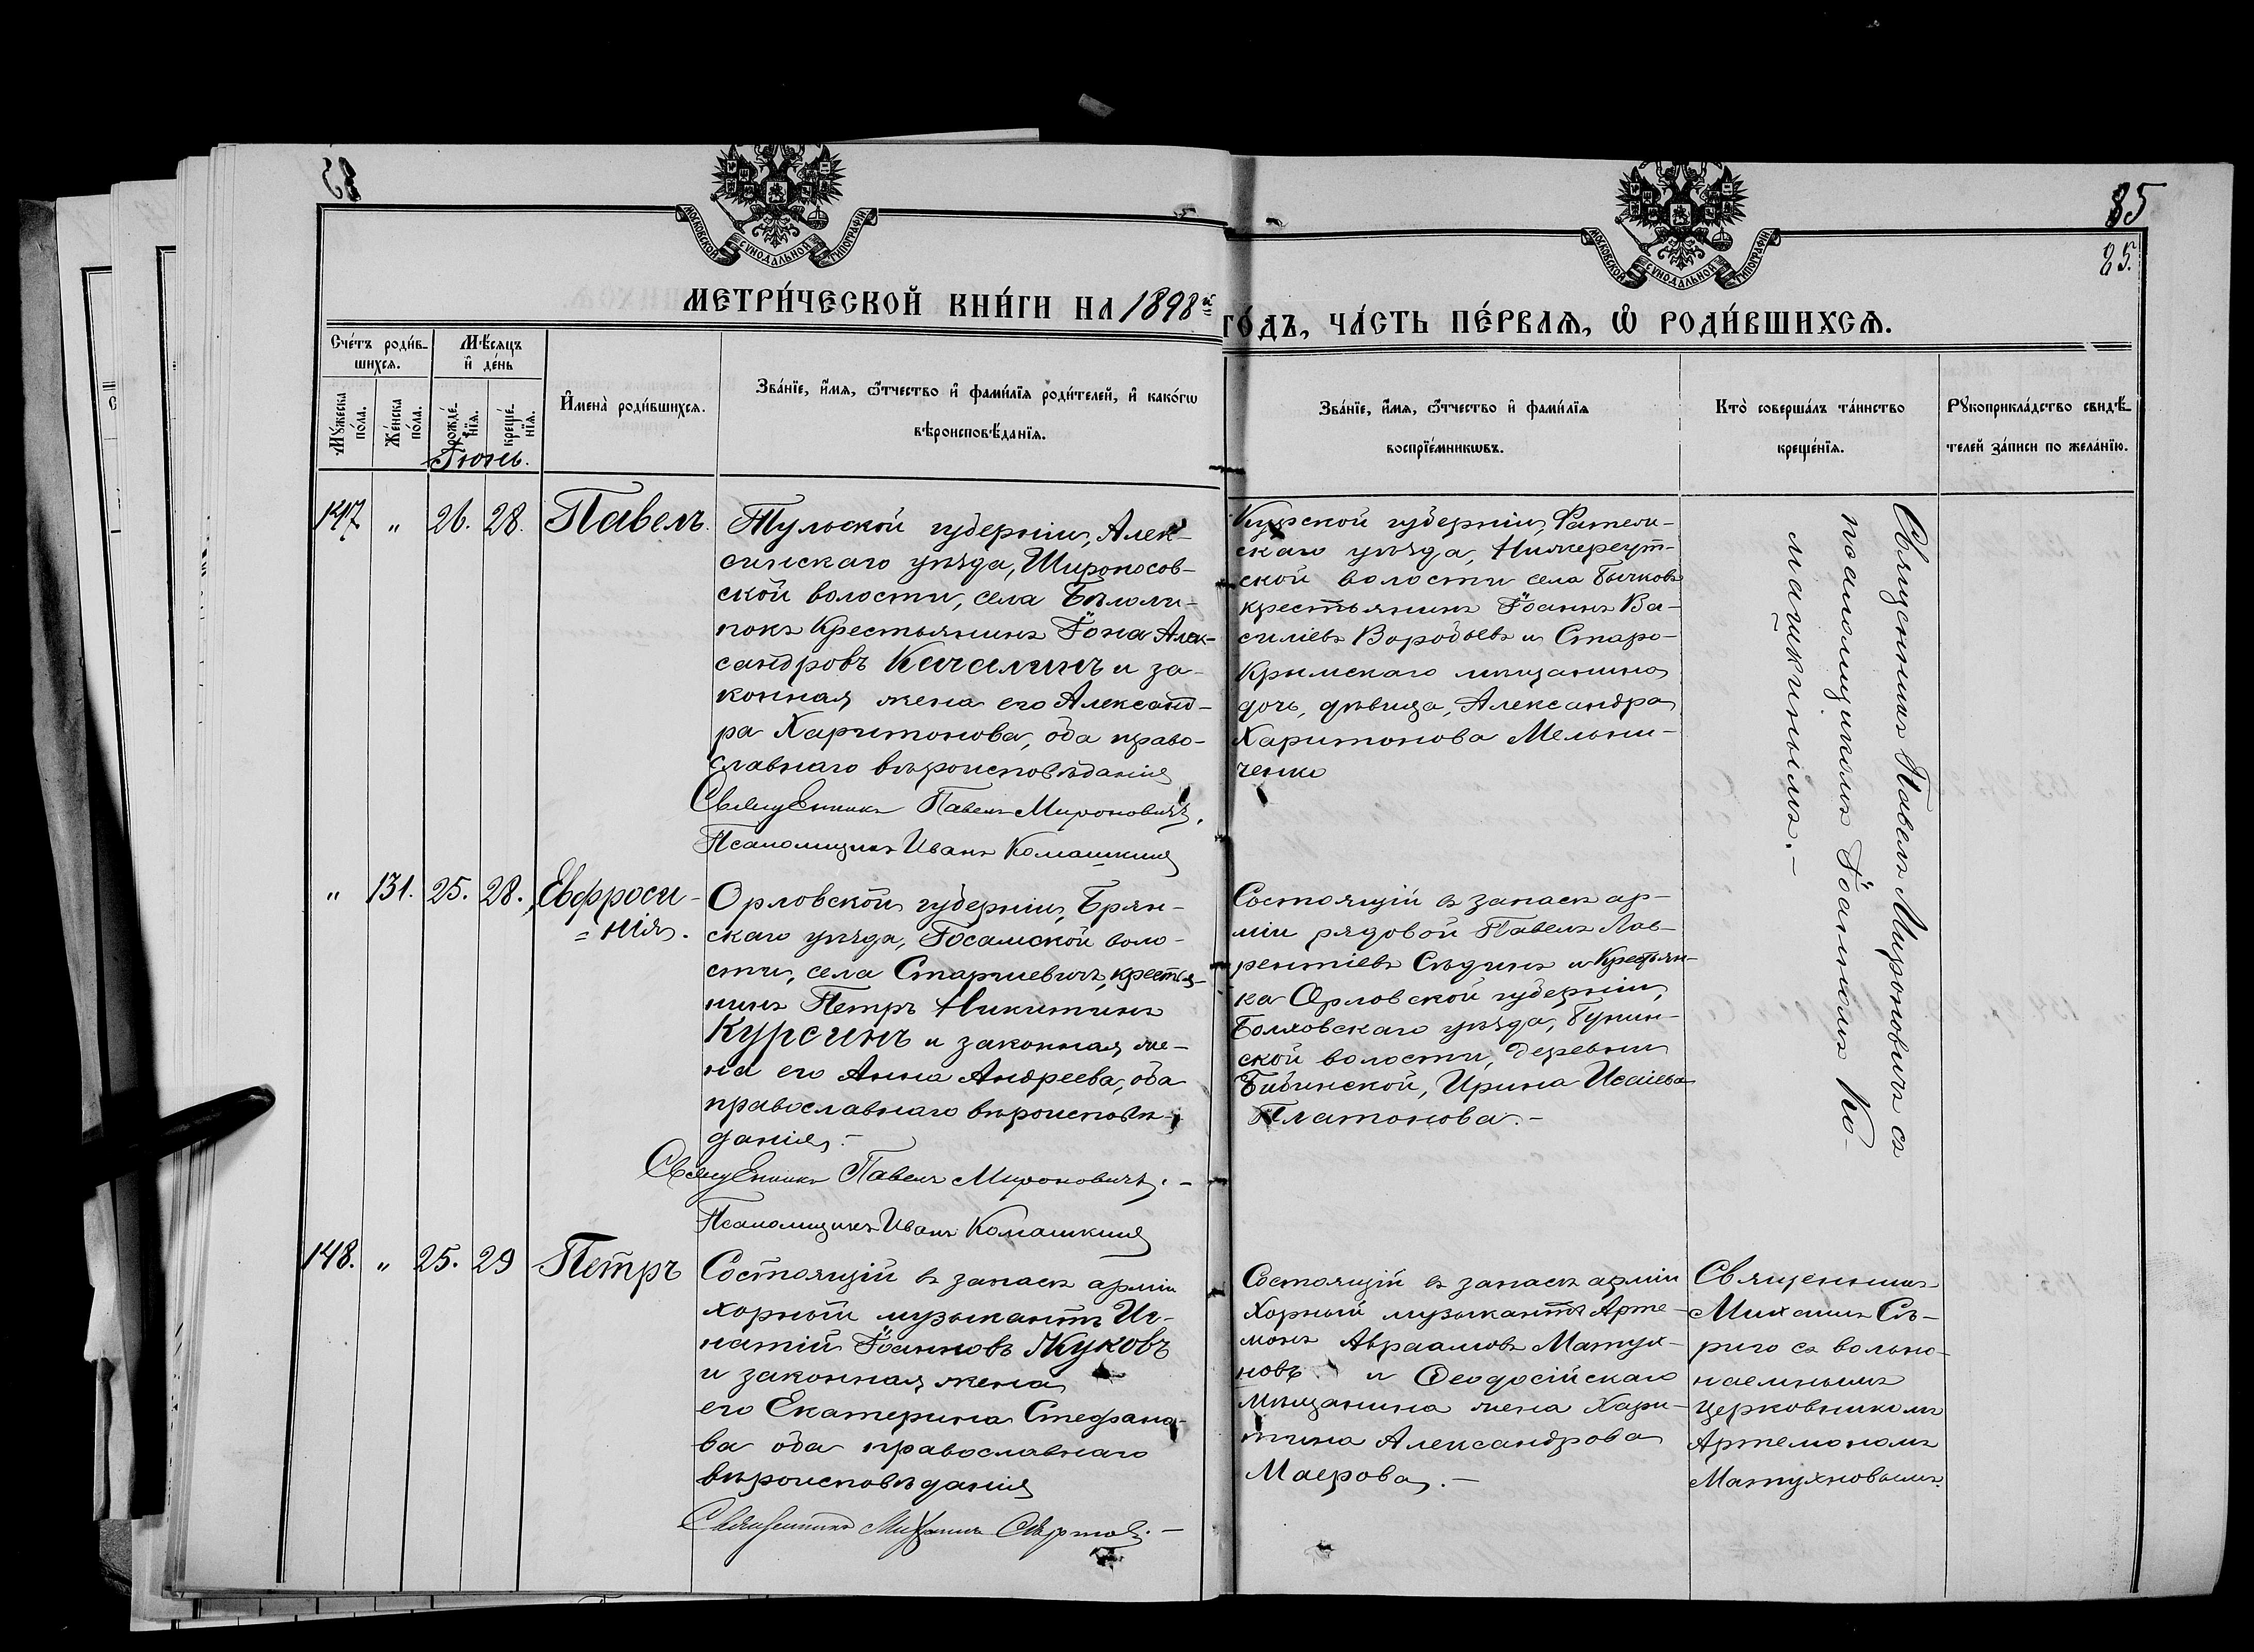 85
25.
МОСКОВСКОЙ СУНОДАЛЬНОЙ ТИПОГРАФІИ
МОСКОВСКОЙ СУНОДАЛЬНОЙ ТИПОГРАФІИ
МЕТРИ́ЧЕСКОЙ КНИ́ГИ НА 1898й
ГО́ДЪ, ЧА́СТЬ ПЕ́РВАѦ, Ѡ҆ РОДИ́ВШИХСѦ.
Сче́тъ роди́в-
шихсѧ.
Мꙋ́жеска
по́ла.
Же́нска
по́ла.
Мѣ́сѧцъ
и҆ де́нь
рожде́-
нїѧ.
креще́-
нїѧ.
Іюнь.
И҆мена̀ роди́вшихсѧ.
Зва́нїе, и҆́мѧ, ѻ҆́тчество и҆ фами́лїѧ роди́телей, и҆ како́гѡ
вѣроисповѣ́данїѧ.
Зва́нїе, и҆́мѧ, ѻ҆́тчество и҆ фами́лїѧ
воспрїе́мникѡвъ.
Кто̀ соверша́лъ та́инство
креще́нїѧ.
Рꙋкоприкла́дство свидѣ́-
телей за́писи по жела́нїю.
147 „ 26. 28. Павелъ.
Тульской губерніи, Алек-
синскаго уѣзда, Широносов-
ской волости, села Бѣлоли-
покъ Крестьянинъ Іона Алек-
сандровъ Качалинъ и за-
конная жена его Александ-
ра Харитонова, оба право-
славнаго вѣроисповѣданія
Священникъ Павелъ Мироновичъ.
Псаломщикъ Иванъ Комашкинъ
Курской губерніи,
скаго уѣзда,
ской волости села Бычковъ
крестьянинъ Іоаннъ Ва-
силіевъ Воробьевъ и Старо-
Крымскаго мѣщанина
дочь, дѣвица, Александра
Харитонова Мельни-
ченко
Священникъ Павелъ Мироновичъ съ
псаломщикомъ Іоанномъ Ко-
машкинымъ.-
„ 131. 25. 28. Евфроси-
=нія.
Орловской губерніи, Брян-
скаго уѣзда, воло-
сти, села крестья-
нинъ Петръ Никитинъ
Курсинъ и законная же-
на его Анна Андреева, оба
православнаго вѣроисповѣ-
данія.-
Священникъ Павелъ Мироновичъ.-
Псаломщикъ Иванъ Комашкинъ
Состоящій въ запасѣ ар-
міи рядовой Павелъ Лав-
рентіевъ Сѣдинъ и Крестьян-
ка Орловской губерніи,
Болховскаго уѣзда, Бунин-
ской волости, деревни
Ирина Исаіева
Платонова.-
148. „ 25. 29 Петръ
Состоящій въ запасѣ арміи
хорный музыкантъ Иг-
натій Іоанновъ Жуковъ
и законная жена
его Екатерина Стефано-
ва оба православнаго
вѣроисповѣданія
Священникъ Михаилъ
Состоящій въ запасѣ арміи
Хорный музыкантъ Арте-
монъ Авраамовъ Матух-
новъ и Ѳеодосійскаго
мѣщанина жена Хари-
тина Александрова
Маерова.-
Священникъ
Михаилъ Сѣ-
риго съ вольно-
наемнымъ
церковникомъ
Артемономъ
Матухновымъ.